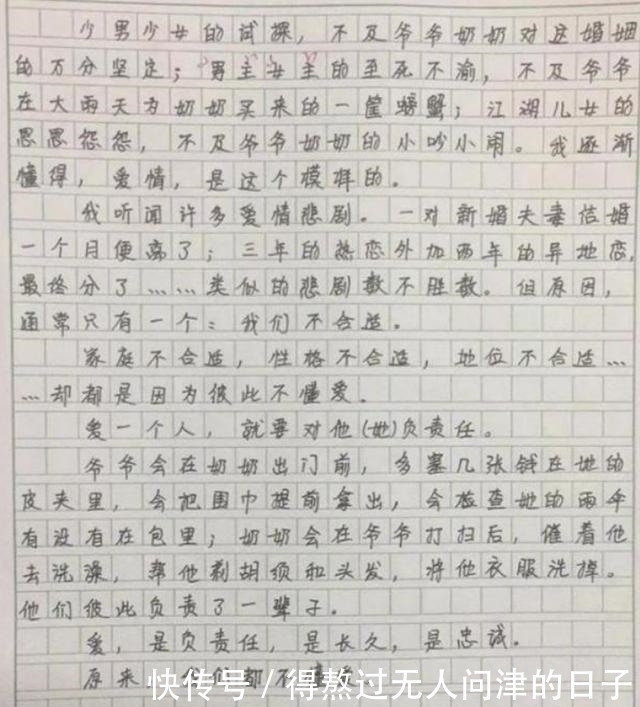 少男少女的试探，不及爷爷奶奶对这婚姻
的万分坚定；男主女主的至死不渝，不及爷爷
在大雨天为奶奶买来的一筐螃蟹；江湖儿女的
恩恩怨怨，不及爷爷奶奶的小吵小闹。我逐渐
懂得，爱情，是这个模样的。
我听闻许多爱情悲剧。一对新婚夫妻结婚
一个月便离了；三年的热恋外加两年的异地恋，
最终分了……类似的悲剧数不胜数。但原因，
通常只有一个：我们不合适。
家庭不合适，性格不合适，地位不合适…
…却都是因为彼此不懂爱。
爱一个人，就要对他(她)负责任。
爷爷会在奶奶出门前，多塞几张钱在她的
皮夹里，会把围巾提前拿出，会检查她的雨伞
有没有在包里；奶奶会在爷爷打扫后，催着他
去洗澡，帮他剃胡须和头发，将他衣服洗掉。
他们彼此负责了一辈子。
爱，是负责任，是长久，是忠诚。
原来
快传号／得熬过无人问津的日子